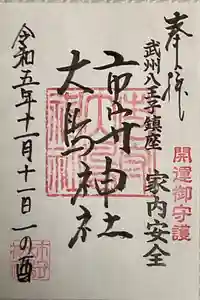 奉拝
開運御守護
武州八王子鎮座
家内安全
市守神社
大鳥神社
令和五年十一月十一日一の酉